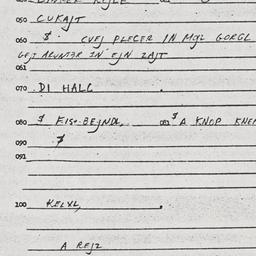 050 CUKAJT
060 $ CVEJ PLECER IN MAJL GORGL
GEJ ARUNTER IN EJN ZAJT
061
070 DI HALC .
080 $ EJSO-BEJNDL, 081 $ A KNOP KNEP
090 $
091
100 KELXL, .
A REJZ